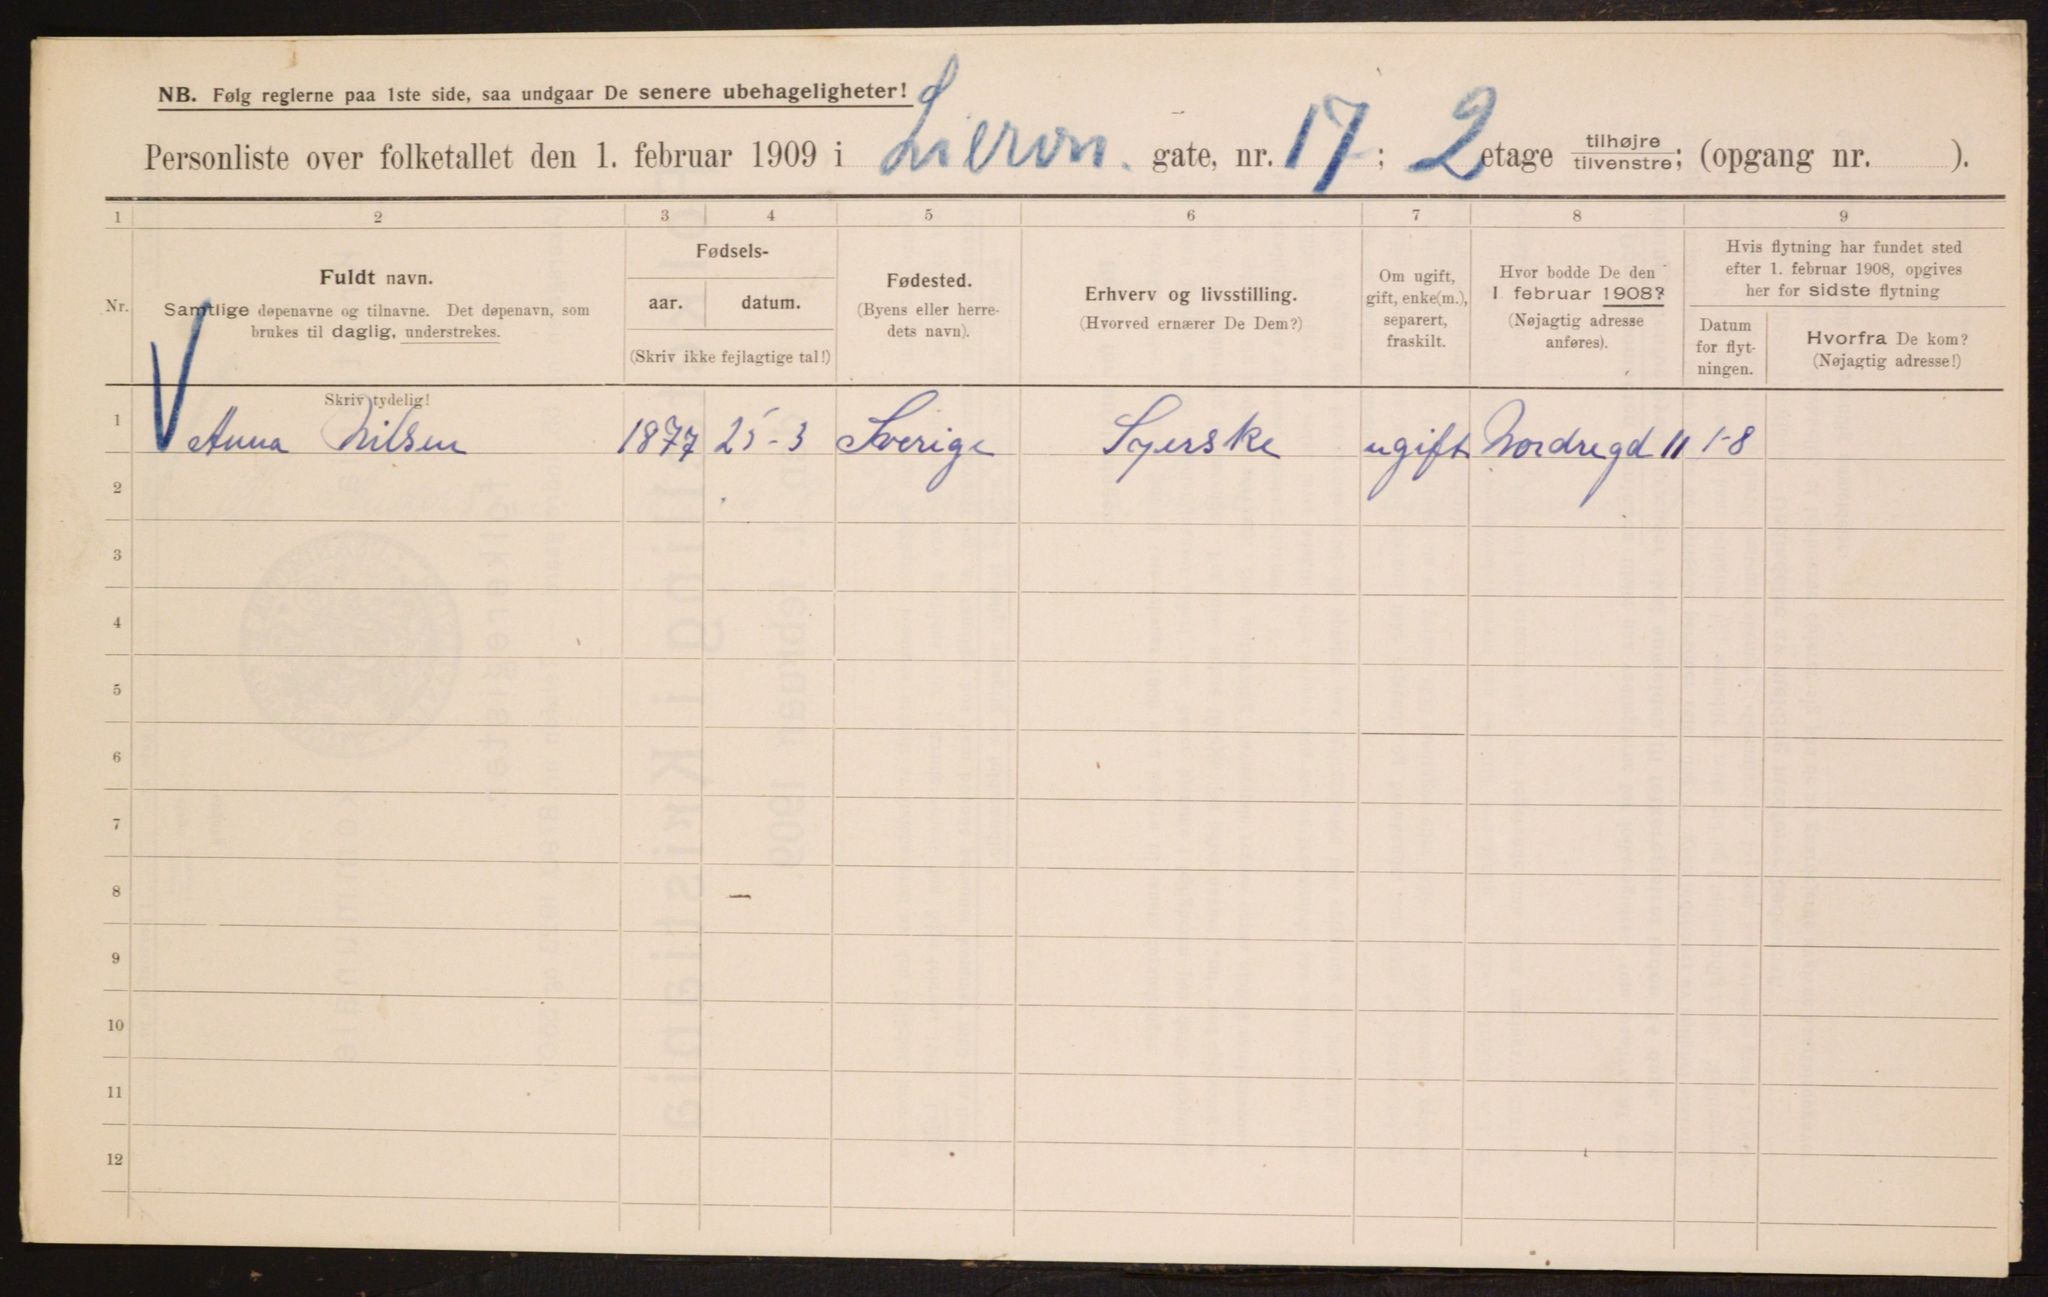 NB. Følg reglerne paa 1ste side, saa undgaar De senere ubehageligheter!
Personliste over folketallet den 1. februar 1909 i Lieron. gate, nr. 17; 2 etage tilhøjre tilvenstre; (opgang nr. ).
1 2 3 4 5 6 7 8 9
Nr.
Fuldt navn.
Samtlige døpenavne og tilnavne. Det døpenavn, som
brukes til daglig, understrekes.
Fødsels-
aar. datum.
(Skriv ikke fejlagtige tal!)
Fødested.
(Byens eller herre-
dets navn).
Erhverv og livsstilling.
(Hvorved ernærer De Dem?)
Om ugift,
gift, enke(m.),
separert,
fraskilt.
Hvor bodde De den
1 februar 1908?
(Nøjagtig adresse
anføres).
Hvis flytning har fundet sted
efter 1. februar 1908, opgives
her for sidste flytning
Datum
for flyt-
ningen.
Hvorfra De kom?
(Nøjagtig adresse!)
Skriv tydelig!
1 Anna Nilsen 1877 25-3 Sverige Syerske ugift Nordregd 11 1-8
2
3
4
5
6
7
8
9
10
11
12